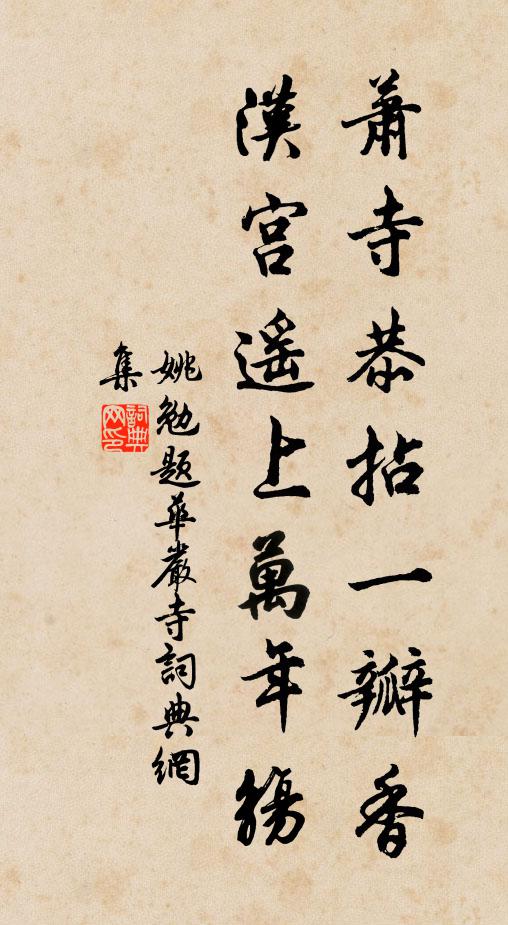 蕭寺恭拈一瓣香
漢宮遥上萬年觴
姚勉題華嚴寺詞典網
集
詞典网印